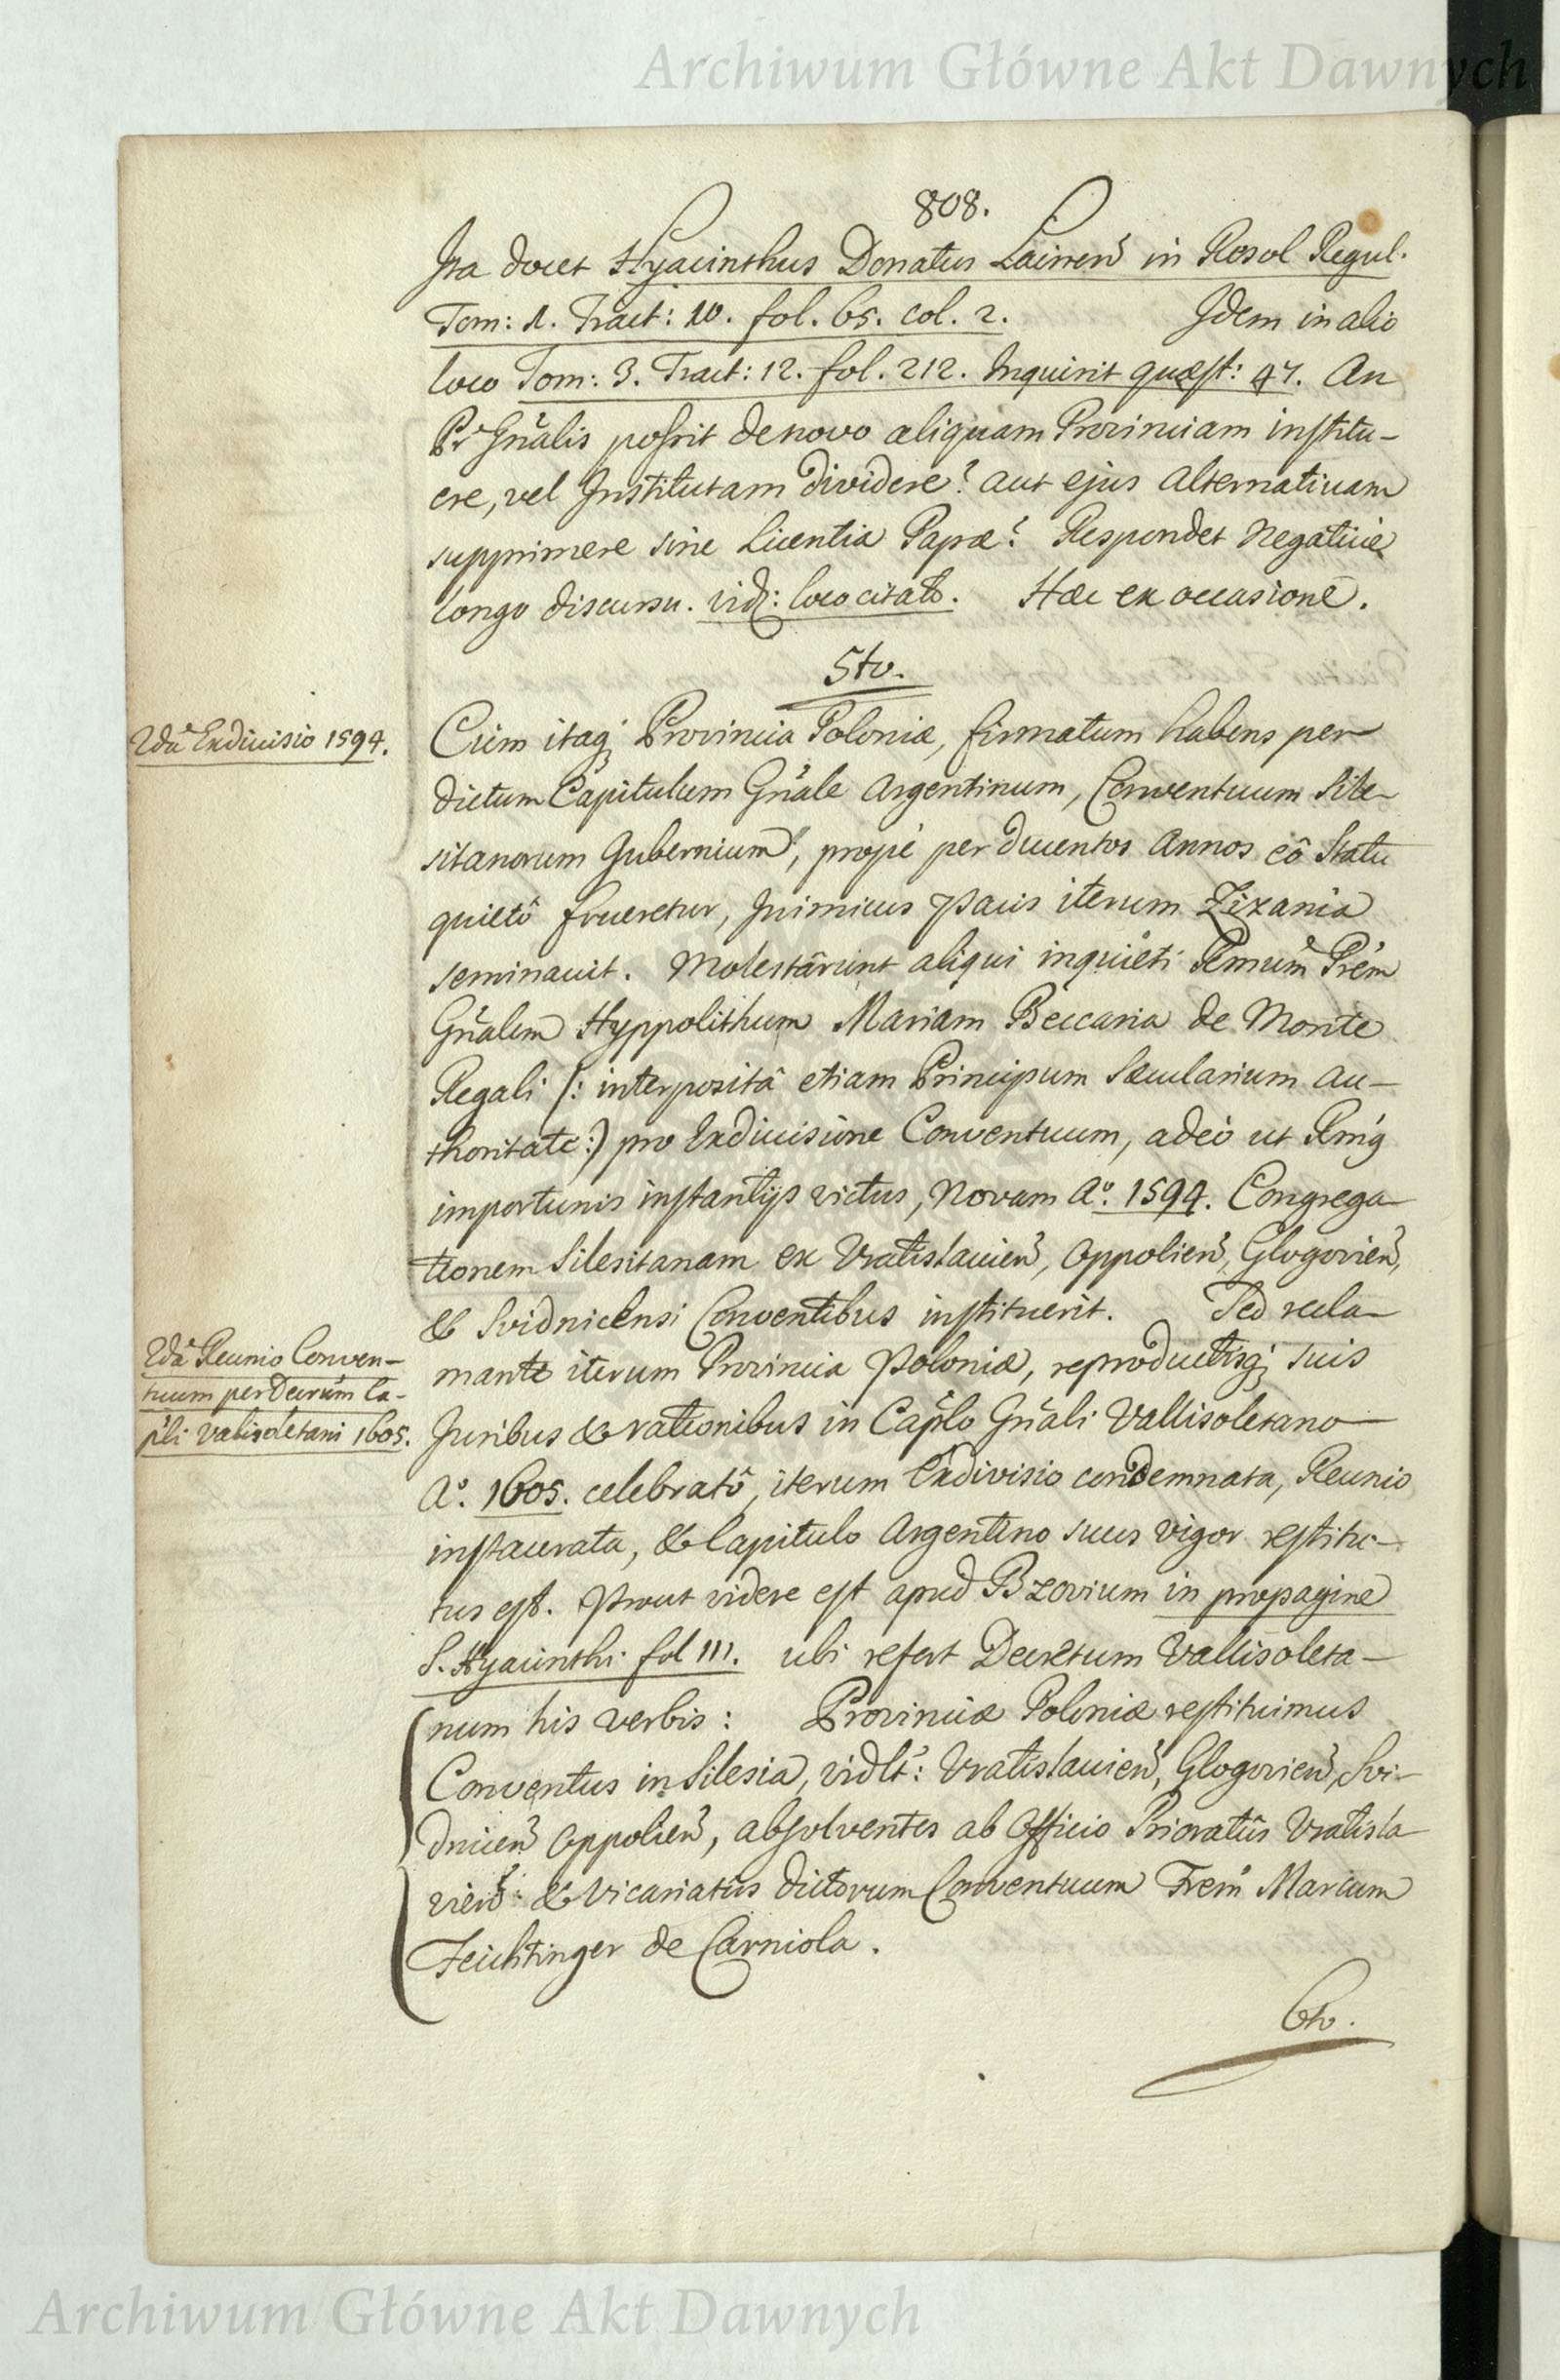 Archiwum Główne Akt Dawnych
808.
Ita docet Hyacinthus Donatus Lairren̄ in Resol Regul.
Tom: 1. Tract: 10. fol. 65. col. 2. Idem in alio
loco Tom: 3. Tract: 12. fol. 212. Inquirit quæst: 47. An
Pr Gn̄alis possit denovo aliquam Provinciam institu-
ere, vel Institutam dividere? aut ejus Alternativam
supprimere sine Licentia Papæ? Respondet Negativè
longo discursu. vid: loco citato. Hæc ex occasione.
5to.
2da Exdiuisio 1594.
Cùm itaq; Provincia Poloniæ, firmatum habens per
dictum Capitulum Gn̄ale Argentinum, Conventuum Sile-
sitanorum Gubernium, propè per ducentos Annos eô Statu
quietô frueretur, Inimicus Pacis iterum Zizania
seminauit. Molestârunt aliqui inquieti Rm̄um Prēm
Gn̄alem Hyppolithum Mariam Beccaria de Monte
Regali (: interpositâ etiam Principum Sæcularium au-
thoritate :) pro Exdiuisione Conventuum, adeò ut Rm̄q
importunis instantijs victus, Novam Aº. 1594. Congrega-
tionem Silesitanam ex Vratislauien̄, Oppolien̄, Glogovien̄,
& Svidnicensi Conventibus instituerit. Sed recla-
2da Reunio Conven-
tuum per Decrūm Ca-
pli Valisoletani 1605.
mante iterum Provincia Poloniæ, reproductisq; suis
Juribus & rationibus in Cap̄lo Gn̄ali Vallisoletano
Aº. 1605. celebratô, iterum Exdivisio condemnata, Reunio
instaurata, & Capitulo Argentino suus vigor restitu-
tus est. Prout videre est apud Bzovium in propagine
S. Hyacinthi fol 111. ubi refert Decretum Vallisoleta-
num his verbis: Provinciæ Poloniæ restituimus
Conventus in Silesia, vidlt: Vratislauien̄, Glogovien̄, Svi-
dnicen̄ Oppolien̄, absolventes ab Officio Prioratûs Vratisla-
vien̄ & Vicariatûs dictorum Conventuum Frem̄ Marcum
Feichtinger de Carniola.
6to.
Archiwum Główne Akt Dawnych